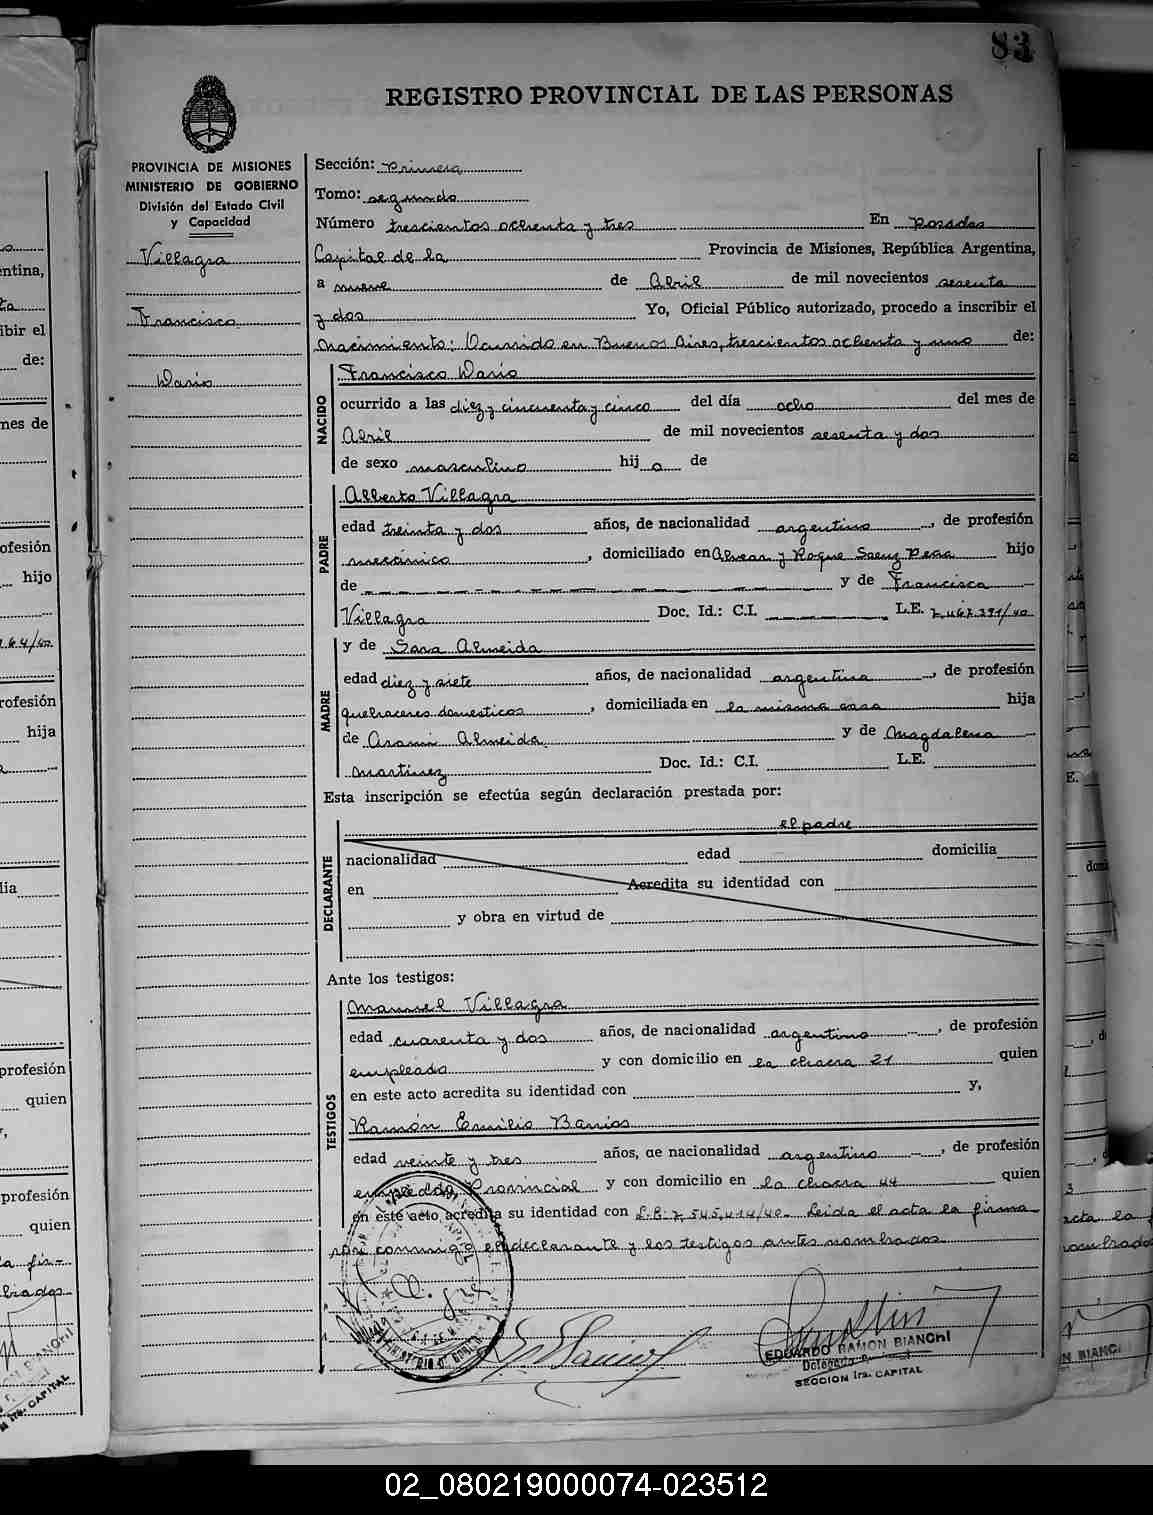 83
REGISTRO PROVINCIAL DE LAS PERSONAS
PROVINCIA DE MISIONES
MINISTERIO DE GOBIERNO
División del Estado Civil
y Capacidad
Villagra
Francisco
Dario
Sección: Primera
Tomo: segundo
Número trescientos ochenta y tres En Posadas
Capital de la Provincia de Misiones, República Argentina,
a nueve de Abril de mil novecientos sesenta
y dos Yo, Oficial Público autorizado, procedo a inscribir el
nacimiento: Ocurrido en Buenos Aires, trescientos ochenta y uno de:
NACIDO
Francisco Dario
ocurrido a las diez y cincuenta y cinco del día ocho del mes de
Abril de mil novecientos sesenta y dos
de sexo masculino hij o de
PADRE
Alberto Villagra
edad treinta y dos años, de nacionalidad argentino, de profesión
mecánico, domiciliado en Alvear y Roque Saenz Peña hijo
de y de Francisca
Villagra Doc. Id.: C.I. L.E. 7.467.391/40
MADRE
y de Sara Almeida
edad diez y siete años, de nacionalidad argentina, de profesión
quehaceres domesticos, domiciliada en la misma casa hija
de Almeida y de Magdalena
Martinez Doc. Id.: C.I. L.E.
Esta inscripción se efectúa según declaración prestada por:
DECLARANTE
el padre
nacionalidad edad domicilia
en Acredita su identidad con
y obra en virtud de
Ante los testigos:
TESTIGOS
Manuel Villagra
edad cuarenta y dos años, de nacionalidad argentino, de profesión
empleado y con domicilio en la chacra 21 quien
en este acto acredita su identidad con y,
Ramón Emilio Barrios
edad veinte y tres años, de nacionalidad argentino, de profesión
empleado Provincial y con domicilio en la chacra 44 quien
en este acto acredita su identidad con L.E. 7.545.414/40. Leida el acta la firma
por conmigo el declarante y los testigos antes nombrados
EDUARDO RAMON BIANCHI
SECCION 1ra. CAPITAL
02_080219000074-023512